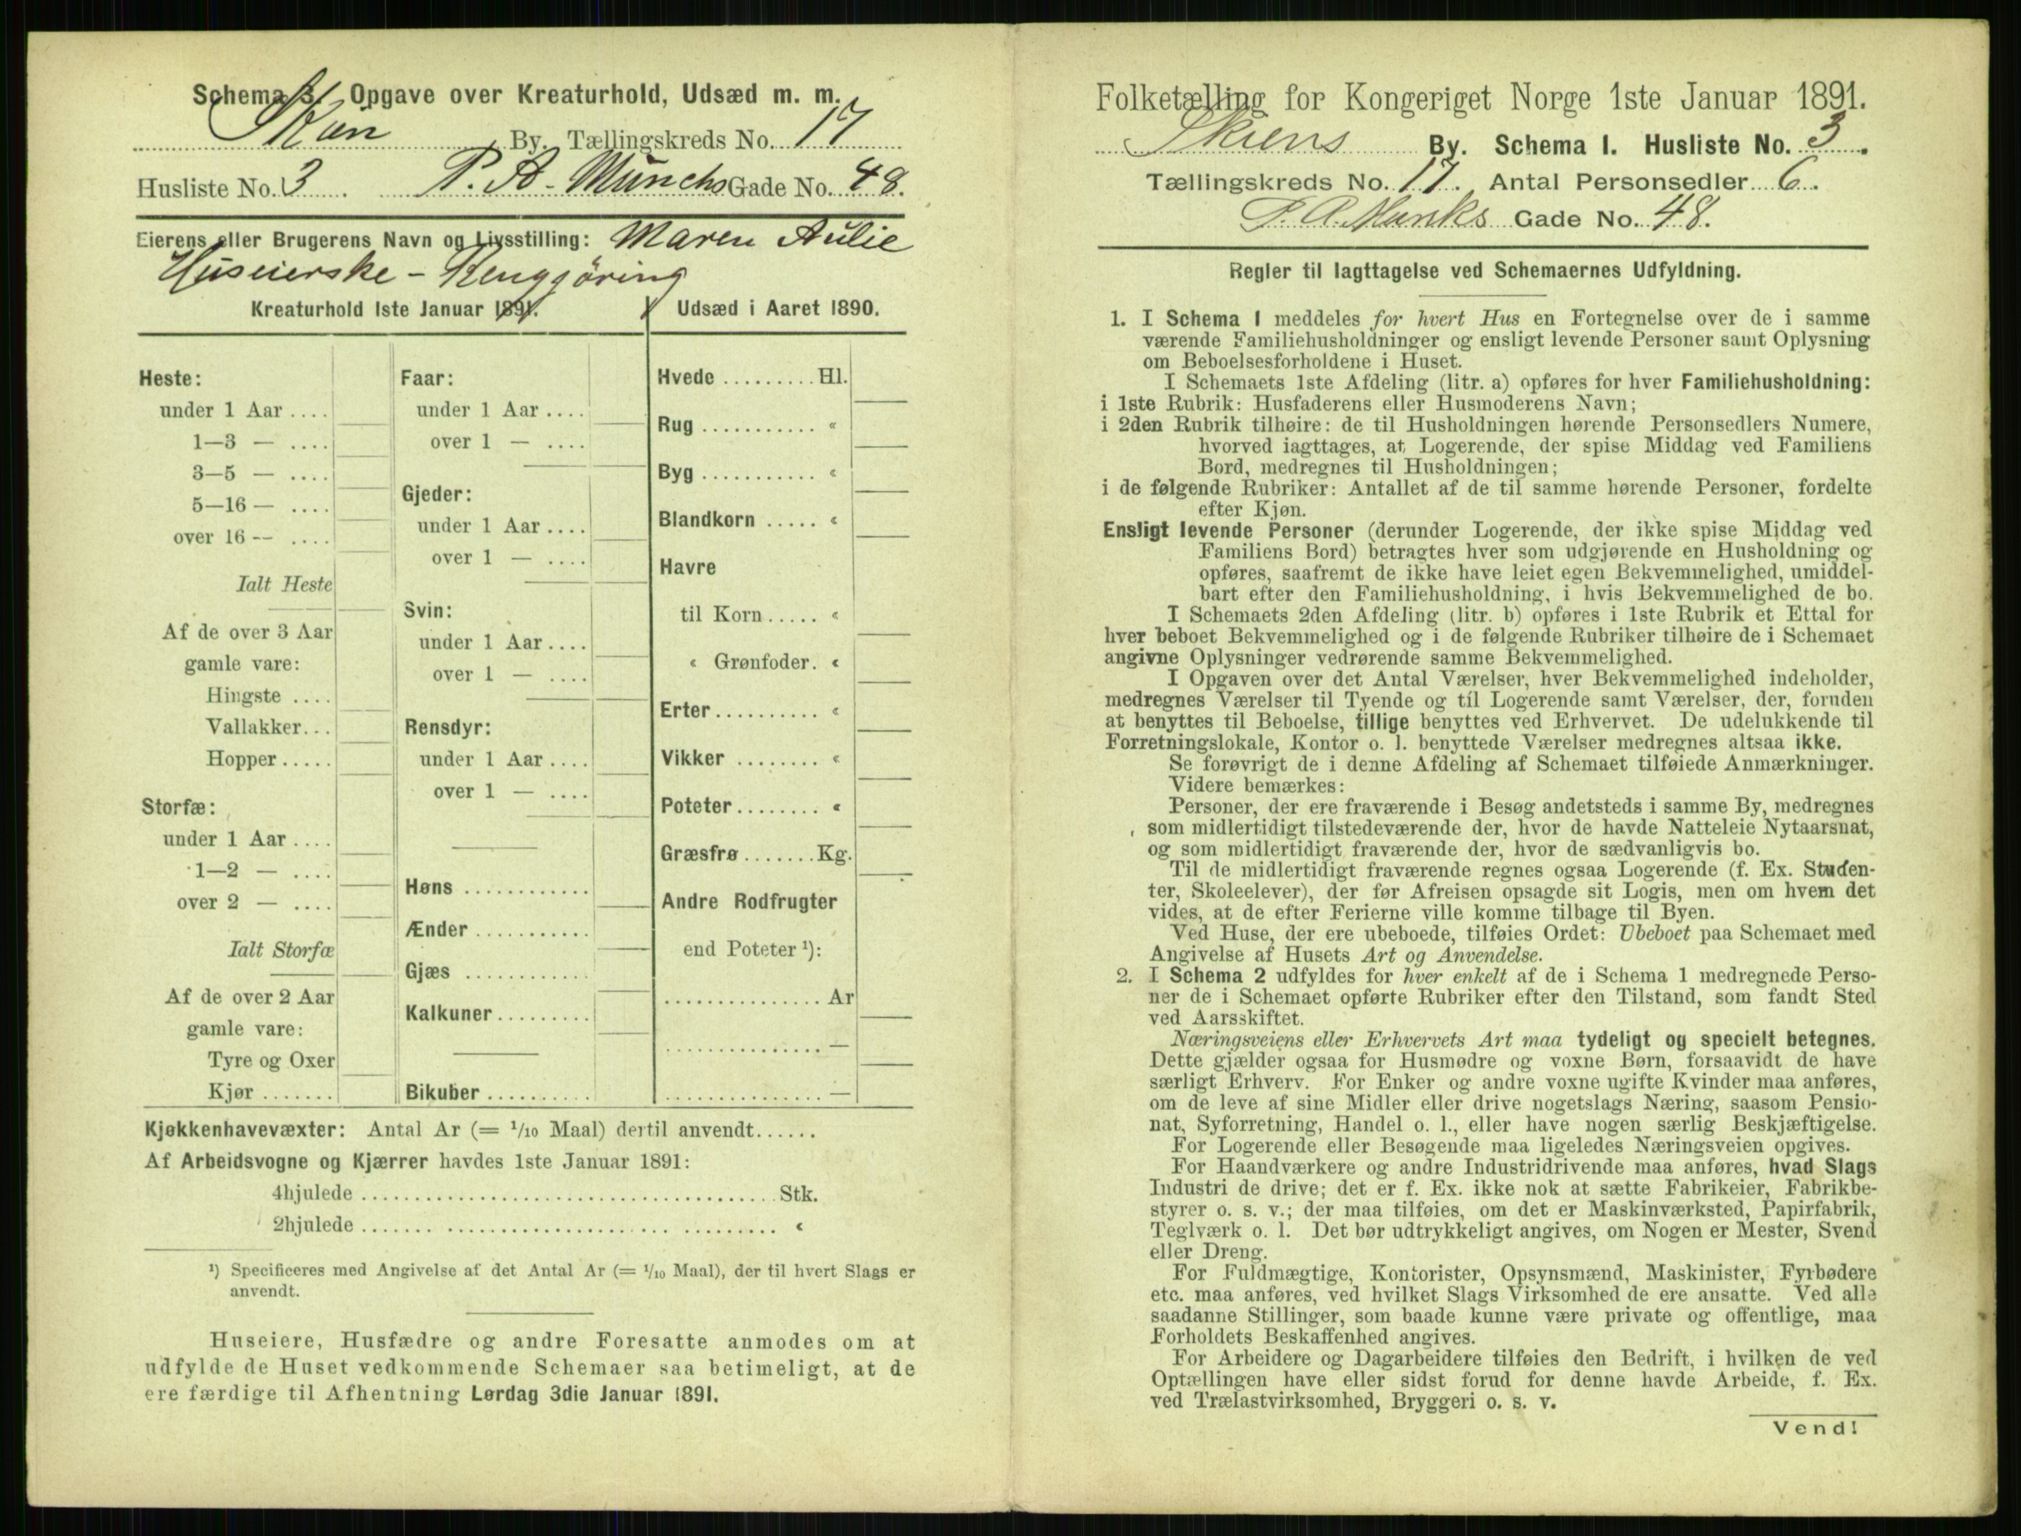 Schema 3. Opgave over Kreaturhold, Udsæd m. m.
Skien By. Tællingskreds No. 17
Husliste No. 3 P. A. Munchs Gade No. 48.
Eierens eller Brugerens Navn og Livsstilling: Maren Aulie
Huseierske - Rengjøring
Kreaturhold 1ste Januar 1891.
Heste:
under 1 Aar ....
1—3 — ....
3—5 — ....
5—16 — ....
over 16 — ....
Ialt Heste
Af de over 3 Aar
gamle vare:
Hingste ....
Vallakker...
Hopper.....
Storfæ:
under 1 Aar ....
1—2 — ....
over 2 — ....
Ialt Storfæ
Af de over 2 Aar
gamle vare:
Tyre og Oxer
Kjør .......
Faar:
under 1 Aar ....
over 1 — ....
Gjeder:
under 1 Aar ....
over 1 — ....
Svin:
under 1 Aar ....
over 1 — ....
Rensdyr:
under 1 Aar ....
over 1 — ....
Høns ............
Ænder ...........
Gjæs ............
Kalkuner.........
Bikuber ..........
Udsæd i Aaret 1890.
Hvede ......... Hl.
Rug ........... «
Byg ........... «
Blandkorn ..... «
Havre
til Korn ..... «
« Grønfoder. «
Erter.......... «
Vikker ........ «
Poteter........ «
Græsfrø ....... Kg.
Andre Rodfrugter
end Poteter ¹):
............... Ar
............... —
............... —
Kjøkkenhavevæxter: Antal Ar (= 1/10 Maal) dertil anvendt......
Af Arbeidsvogne og Kjærrer havdes 1ste Januar 1891:
4hjulede ....................................... Stk.
2hjulede ....................................... «
¹) Specificeres med Angivelse af det Antal Ar (= 1/10 Maal), der til hvert Slags er
anvendt.
Huseiere, Husfædre og andre Foresatte anmodes om at
udfylde de Huset vedkommende Schemaer saa betimeligt, at de
ere færdige til Afhentning Lørdag 3die Januar 1891.
Folketælling for Kongeriget Norge 1ste Januar 1891.
Skiens By. Schema I. Husliste No. 3.
Tællingskreds No. 17. Antal Personsedler 6.
P. A. Munks Gade No. 48.
Regler til Iagttagelse ved Schemaernes Udfyldning.
1. I Schema 1 meddeles for hvert Hus en Fortegnelse over de i samme
værende Familiehusholdninger og ensligt levende Personer samt Oplysning
om Beboelsesforholdene i Huset.
I Schemaets 1ste Afdeling (litr. a) opføres for hver Familiehusholdning:
i 1ste Rubrik: Husfaderens eller Husmoderens Navn;
i 2den Rubrik tilhøire: de til Husholdningen hørende Personsedlers Numere,
hvorved iagttages, at Logerende, der spise Middag ved Familiens
Bord, medregnes til Husholdningen;
i de følgende Rubriker: Antallet af de til samme hørende Personer, fordelte
efter Kjøn.
Ensligt levende Personer (derunder Logerende, der ikke spise Middag ved
Familiens Bord) betragtes hver som udgjørende en Husholdning og
opføres, saafremt de ikke have leiet egen Bekvemmelighed, umiddel-
bart efter den Familiehusholdning, i hvis Bekvemmelighed de bo.
I Schemaets 2den Afdeling (litr. b) opføres i 1ste Rubrik et Ettal for
hver beboet Bekvemmelighed og i de følgende Rubriker tilhøire de i Schemaet
angivne Oplysninger vedrørende samme Bekvemmelighed.
I Opgaven over det Antal Værelser, hver Bekvemmelighed indeholder,
medregnes Værelser til Tyende og til Logerende samt Værelser, der, foruden
at benyttes til Beboelse, tillige benyttes ved Erhvervet. De udelukkende til
Forretningslokale, Kontor o. l. benyttede Værelser medregnes altsaa ikke.
Se forøvrigt de i denne Afdeling af Schemaet tilføiede Anmærkninger.
Videre bemærkes:
Personer, der ere fraværende i Besøg andetsteds i samme By, medregnes
som midlertidigt tilstedeværende der, hvor de havde Natteleie Nytaarsnat,
og som midlertidigt fraværende der, hvor de sædvanligvis bo.
Til de midlertidigt fraværende regnes ogsaa Logerende (f. Ex. Studen-
ter, Skoleelever), der før Afreisen opsagde sit Logis, men om hvem det
vides, at de efter Ferierne ville komme tilbage til Byen.
Ved Huse, der ere ubeboede, tilføies Ordet: Ubeboet paa Schemaet med
Angivelse af Husets Art og Anvendelse.
2. I Schema 2 udfyldes for hver enkelt af de i Schema 1 medregnede Perso-
ner de i Schemaet opførte Rubriker efter den Tilstand, som fandt Sted
ved Aarsskiftet.
Næringsveiens eller Erhvervets Art maa tydeligt og specielt betegnes.
Dette gjælder ogsaa for Husmødre og voxne Børn, forsaavidt de have
særligt Erhverv. For Enker og andre voxne ugifte Kvinder maa anføres,
om de leve af sine Midler eller drive nogetslags Næring, saasom Pensio-
nat, Syforretning, Handel o. l., eller have nogen særlig Beskjæftigelse.
For Logerende eller Besøgende maa ligeledes Næringsveien opgives.
For Haandværkere og andre Industridrivende maa anføres, hvad Slags
Industri de drive; det er f. Ex. ikke nok at sætte Fabrikeier, Fabrikbe-
styrer o. s. v.; der maa tilføies, om det er Maskinværksted, Papirfabrik,
Teglværk o. l. Det bør udtrykkeligt angives, om Nogen er Mester, Svend
eller Dreng.
For Fuldmægtige, Kontorister, Opsynsmænd, Maskinister, Fyrbødere
etc. maa anføres, ved hvilket Slags Virksomhed de ere ansatte. Ved alle
saadanne Stillinger, som baade kunne være private og offentlige, maa
Forholdets Beskaffenhed angives.
For Arbeidere og Dagarbeidere tilføies den Bedrift, i hvilken de ved
Optællingen have eller sidst forud for denne havde Arbeide, f. Ex.
ved Trælastvirksomhed, Bryggeri o. s. v.
Vend!